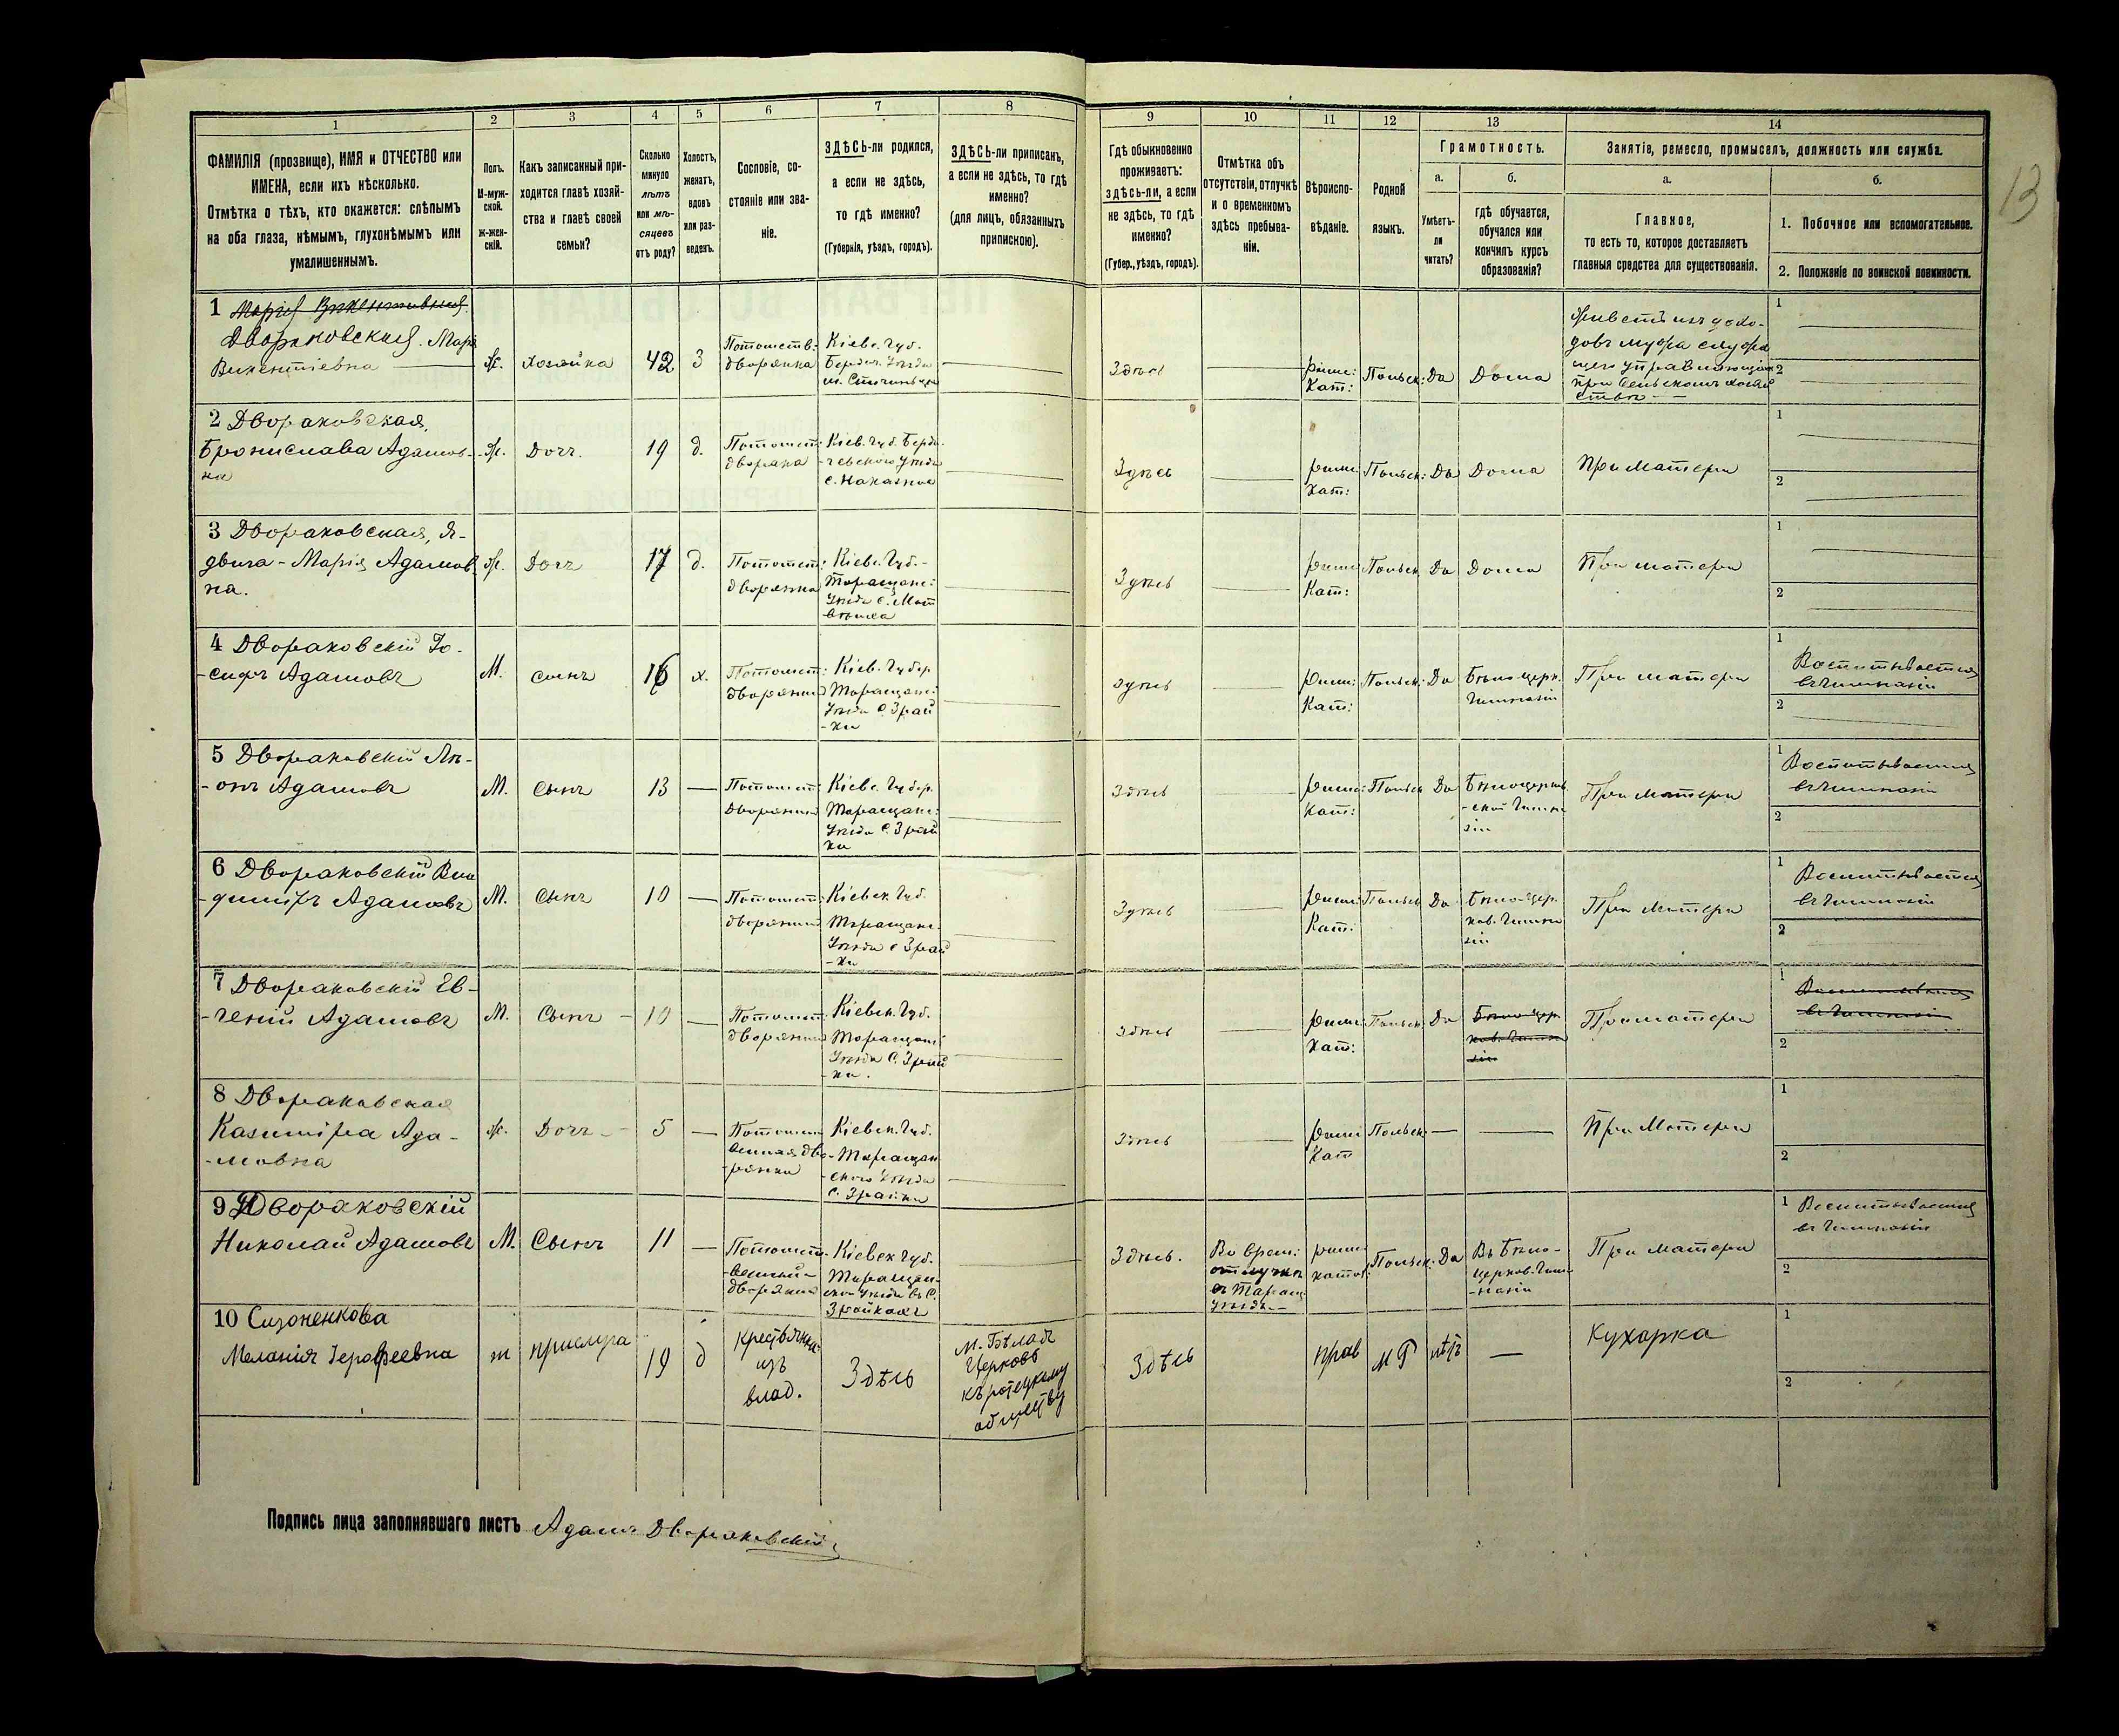 13
1
2
3
4
5
6
7
8
9
10
11
12
13
14
ФАМИЛІЯ (прозвище), ИМЯ и ОТЧЕСТВО или
ИМЕНА, если ихъ нѣсколько.
Отмѣтка о тѣхъ, кто окажется: слѣпымъ
на оба глаза, нѣмымъ, глухонѣмымъ или
умалишеннымъ.
Полъ.
М-муж-
ской.
ж-жен-
скій.
Какъ записанный при-
ходится главѣ хозяй-
ства и главѣ своей
семьи?
Сколько
минуло
лѣтъ
или мѣ-
сяцевъ
отъ роду?
Холостъ,
женатъ,
вдовъ
или раз-
веденъ.
Сословіе, со-
стояніе или зва-
ніе.
ЗДѢСЬ-ли родился,
а если не здѣсь,
то гдѣ именно?
(Губернія, уѣздъ, городъ).
ЗДѢСЬ-ли приписанъ,
а если не здѣсь, то гдѣ
именно?
(для лицъ, обязанныхъ
припискою).
Гдѣ обыкновенно
проживаетъ:
здѣсь-ли, а если
не здѣсь, то гдѣ
именно?
(Губер., уѣздъ, городъ).
Отмѣтка объ
отсутствіи, отлучкѣ
и о временномъ
здѣсь пребыва-
ніи.
Вѣроиспо-
вѣданіе.
Родной
языкъ.
Грамотность.
а.
Умѣетъ-
ли
читать?
б.
гдѣ обучается,
обучался или
кончилъ курсъ
образованія?
Занятіе, ремесло, промыселъ, должность или служба.
а.
Главное,
то есть то, которое доставляетъ
главныя средства для существованія.
б.
1. Побочное или вспомогательное.
2. Положеніе по воинской повинности.
1 Марія Викентіевна
Двораковская Марі
Викентіевна
ж.
хозяйка
42
З
Потомств:
дворянка
Кіевс. Губ.
Бердич. Уѣзда
Здѣсь
Римс:
Кат:
Польск:
Да
Дома
1
2
2 Двораковская,
Бронислава Адамов-
на
ж.
Дочь.
19
д.
Потомст:
дворянка
Кіев. Губ. Берди-
чевского Уѣзда
Здѣсь
Римс:
Кат:
Польск:
Да
Дома
При Матери
1
2
3 Двораковская, Я-
двига-Марія Адамов
на.
ж.
Дочь
17
д.
Потомст:
дворянка
Кіевс. Губ.-
Таращанс:
Уѣзда С. Мат
вѣиха
Здѣсь
Римс:
Кат:
Польск.
Да
Дома
При матери
1
2
4 Двораковскій Іо-
-сифъ Адамовъ
М.
сынъ
16
х.
Потомст:
дворянинъ
Кіев. Губер
Таращанс:
Уѣзда С. Зрай
-ки
Здѣсь
Римс:
Кат:
Польск:
Да
Бѣлоцерк.
Гимназіи
При матери
1
Воспитывается
въ Гимназіи
2
5 Двораковскій Лѣ-
-онъ Адамовъ
М.
Сынъ
13
Потомст:
Дворянинъ
Кіевс. Губер.
Таращанс:
Уѣзда С. Зрай
ки
Здѣсь
Римс:
Кат:
Польск
Да
Бѣлоцерков
-ской Гимна
зіи
При матери
1
Воспитывается
въ Гимназіи
2
6 Двораковскій Вла
-димиръ Адамовъ
М.
Сынъ
10
Потомст:
дворянинъ
Кіевск. Губ.
Таращанс.
Уѣзда с Зрай
-ки
Здѣсь
Римс:
Кат:
Польск
Да
Бѣло-Цер.
ков. Гимна
зіи
При Матери
1
Воспитывается
въ Гимназіи
2
7 Двораковскій Ев-
-геній Адамовъ
М.
Сынъ
10
Потомст.
дворянинъ
Кіевск. Губ.
Таращанс:
Уѣзда С. Зрай
-ки.
Здѣсь
Римс:
Кат:
Польск
Да
Бѣло-Цер.
ков. Гимна
зіи
При матери
1
Воспитывается
въ Гимназіи
2
8 Двораковская
Казиміра Ада-
-мовна
ж.
Дочь
5
Потомст
венная дво-
рянка
Кіевск. Губ.
Таращан
ского Уѣзда
С. Зрайки
Здѣсь
Римс
Кат
Польск
При Матери
1
2
9 Двораковскій
Николай Адамовъ
М.
Сынъ
11
Потомст.
-венный-
дворянинъ
Кіевск Губ.
Таращан-
ског Уѣзда въ С.
Зрайкахъ
Здѣсь.
Во врем:
отлучкѣ
въ Таращ
Уѣздѣ
римс
катол:
Польск:
Да
Въ Бѣло-
церков. Гим-
-назіи
При матери
1
Воспитывается
въ Гимназіи
2
10 Сизоненкова
Меланія Іерофеевна
ж
прислуга
19
д
Крестьянка
изъ
влад.
Здѣсь
М. Бѣлая
Церковь
къ
обществу
Здѣсь
прав
МР
нѣтъ
Кухарка
1
2
Подпись лица заполнявшаго листъ Адамъ Двораковскій